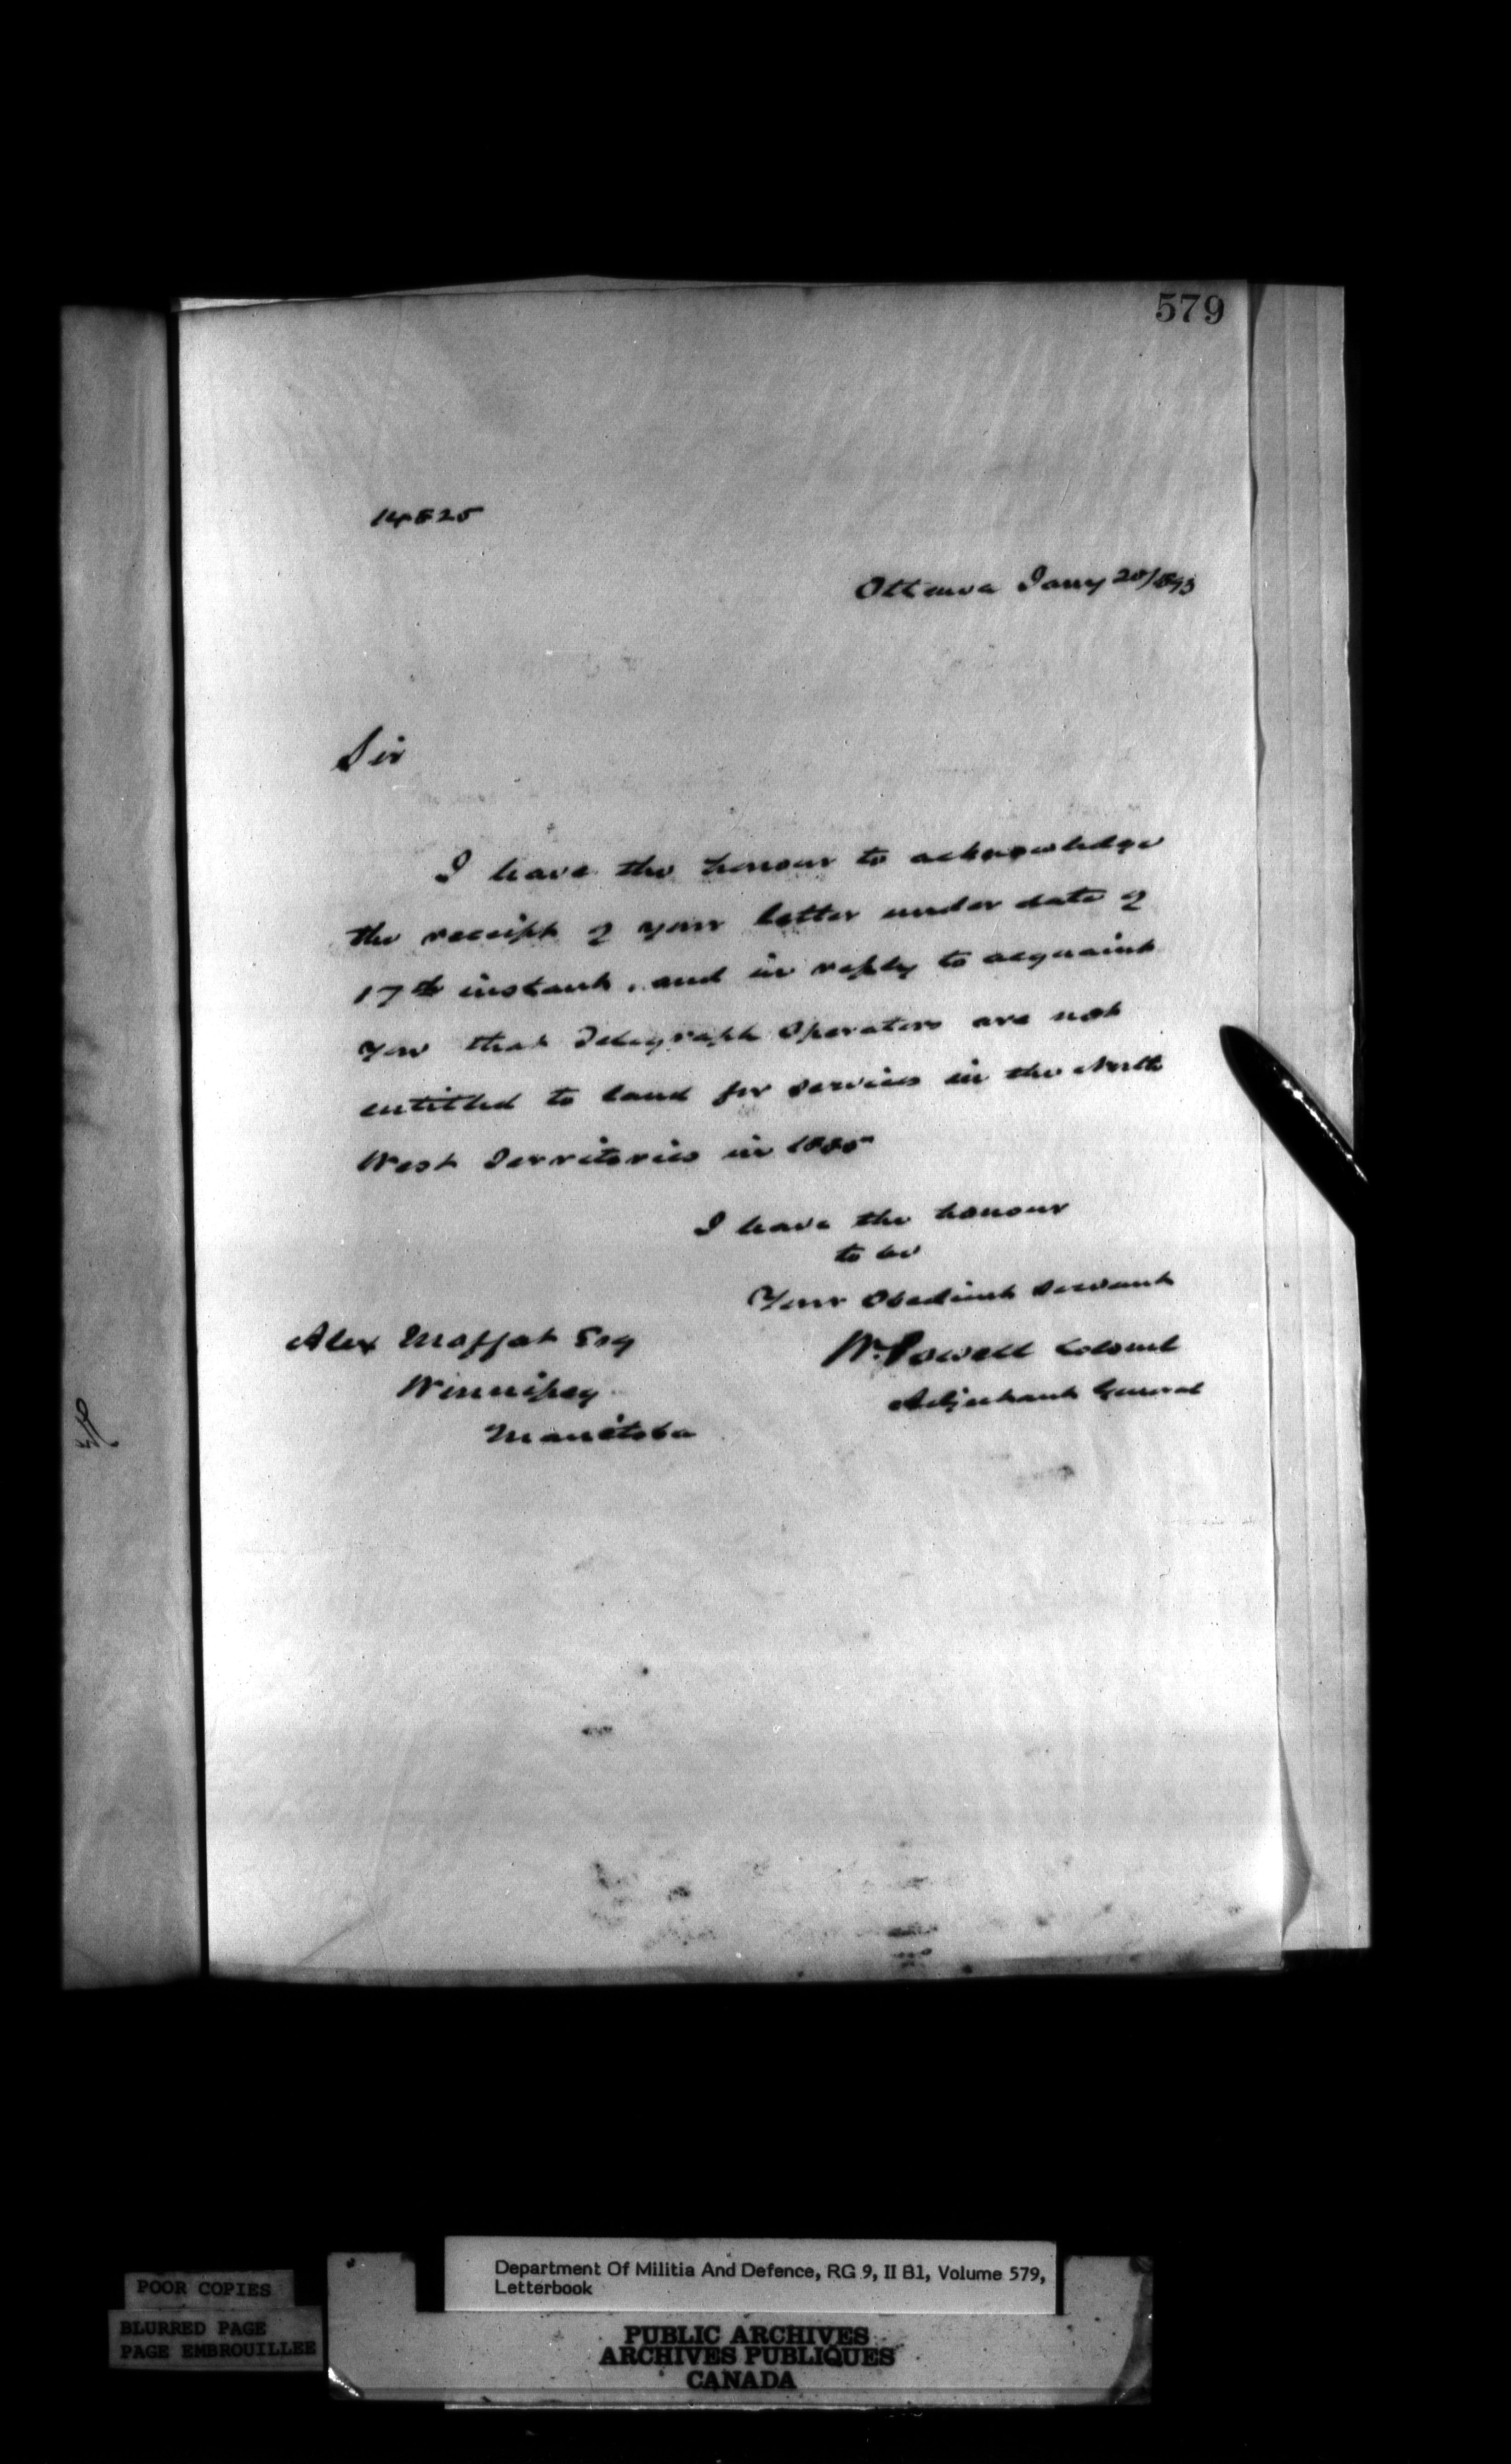 579
14825
Ottawa Jany 20/893
Sir
I have the honour to acknowledge
the receipt of your letter under date of
17th instant, and in reply to acquaint
you that Telegraph Operators are not
entitled to land for services in the North
West Territories in 1885
I have the honour
to be
Your Obedient Servant
W. Powell Colonel
Adjutant General
Alex Moffat Esq
Winnipeg
Manitoba
POOR COPIES
BLURRED PAGE
PAGE EMBROUILLEE
Department Of Militia And Defence, RG 9, II B1, Volume 579,
Letterbook
PUBLIC ARCHIVES
ARCHIVES PUBLIQUES
CANADA